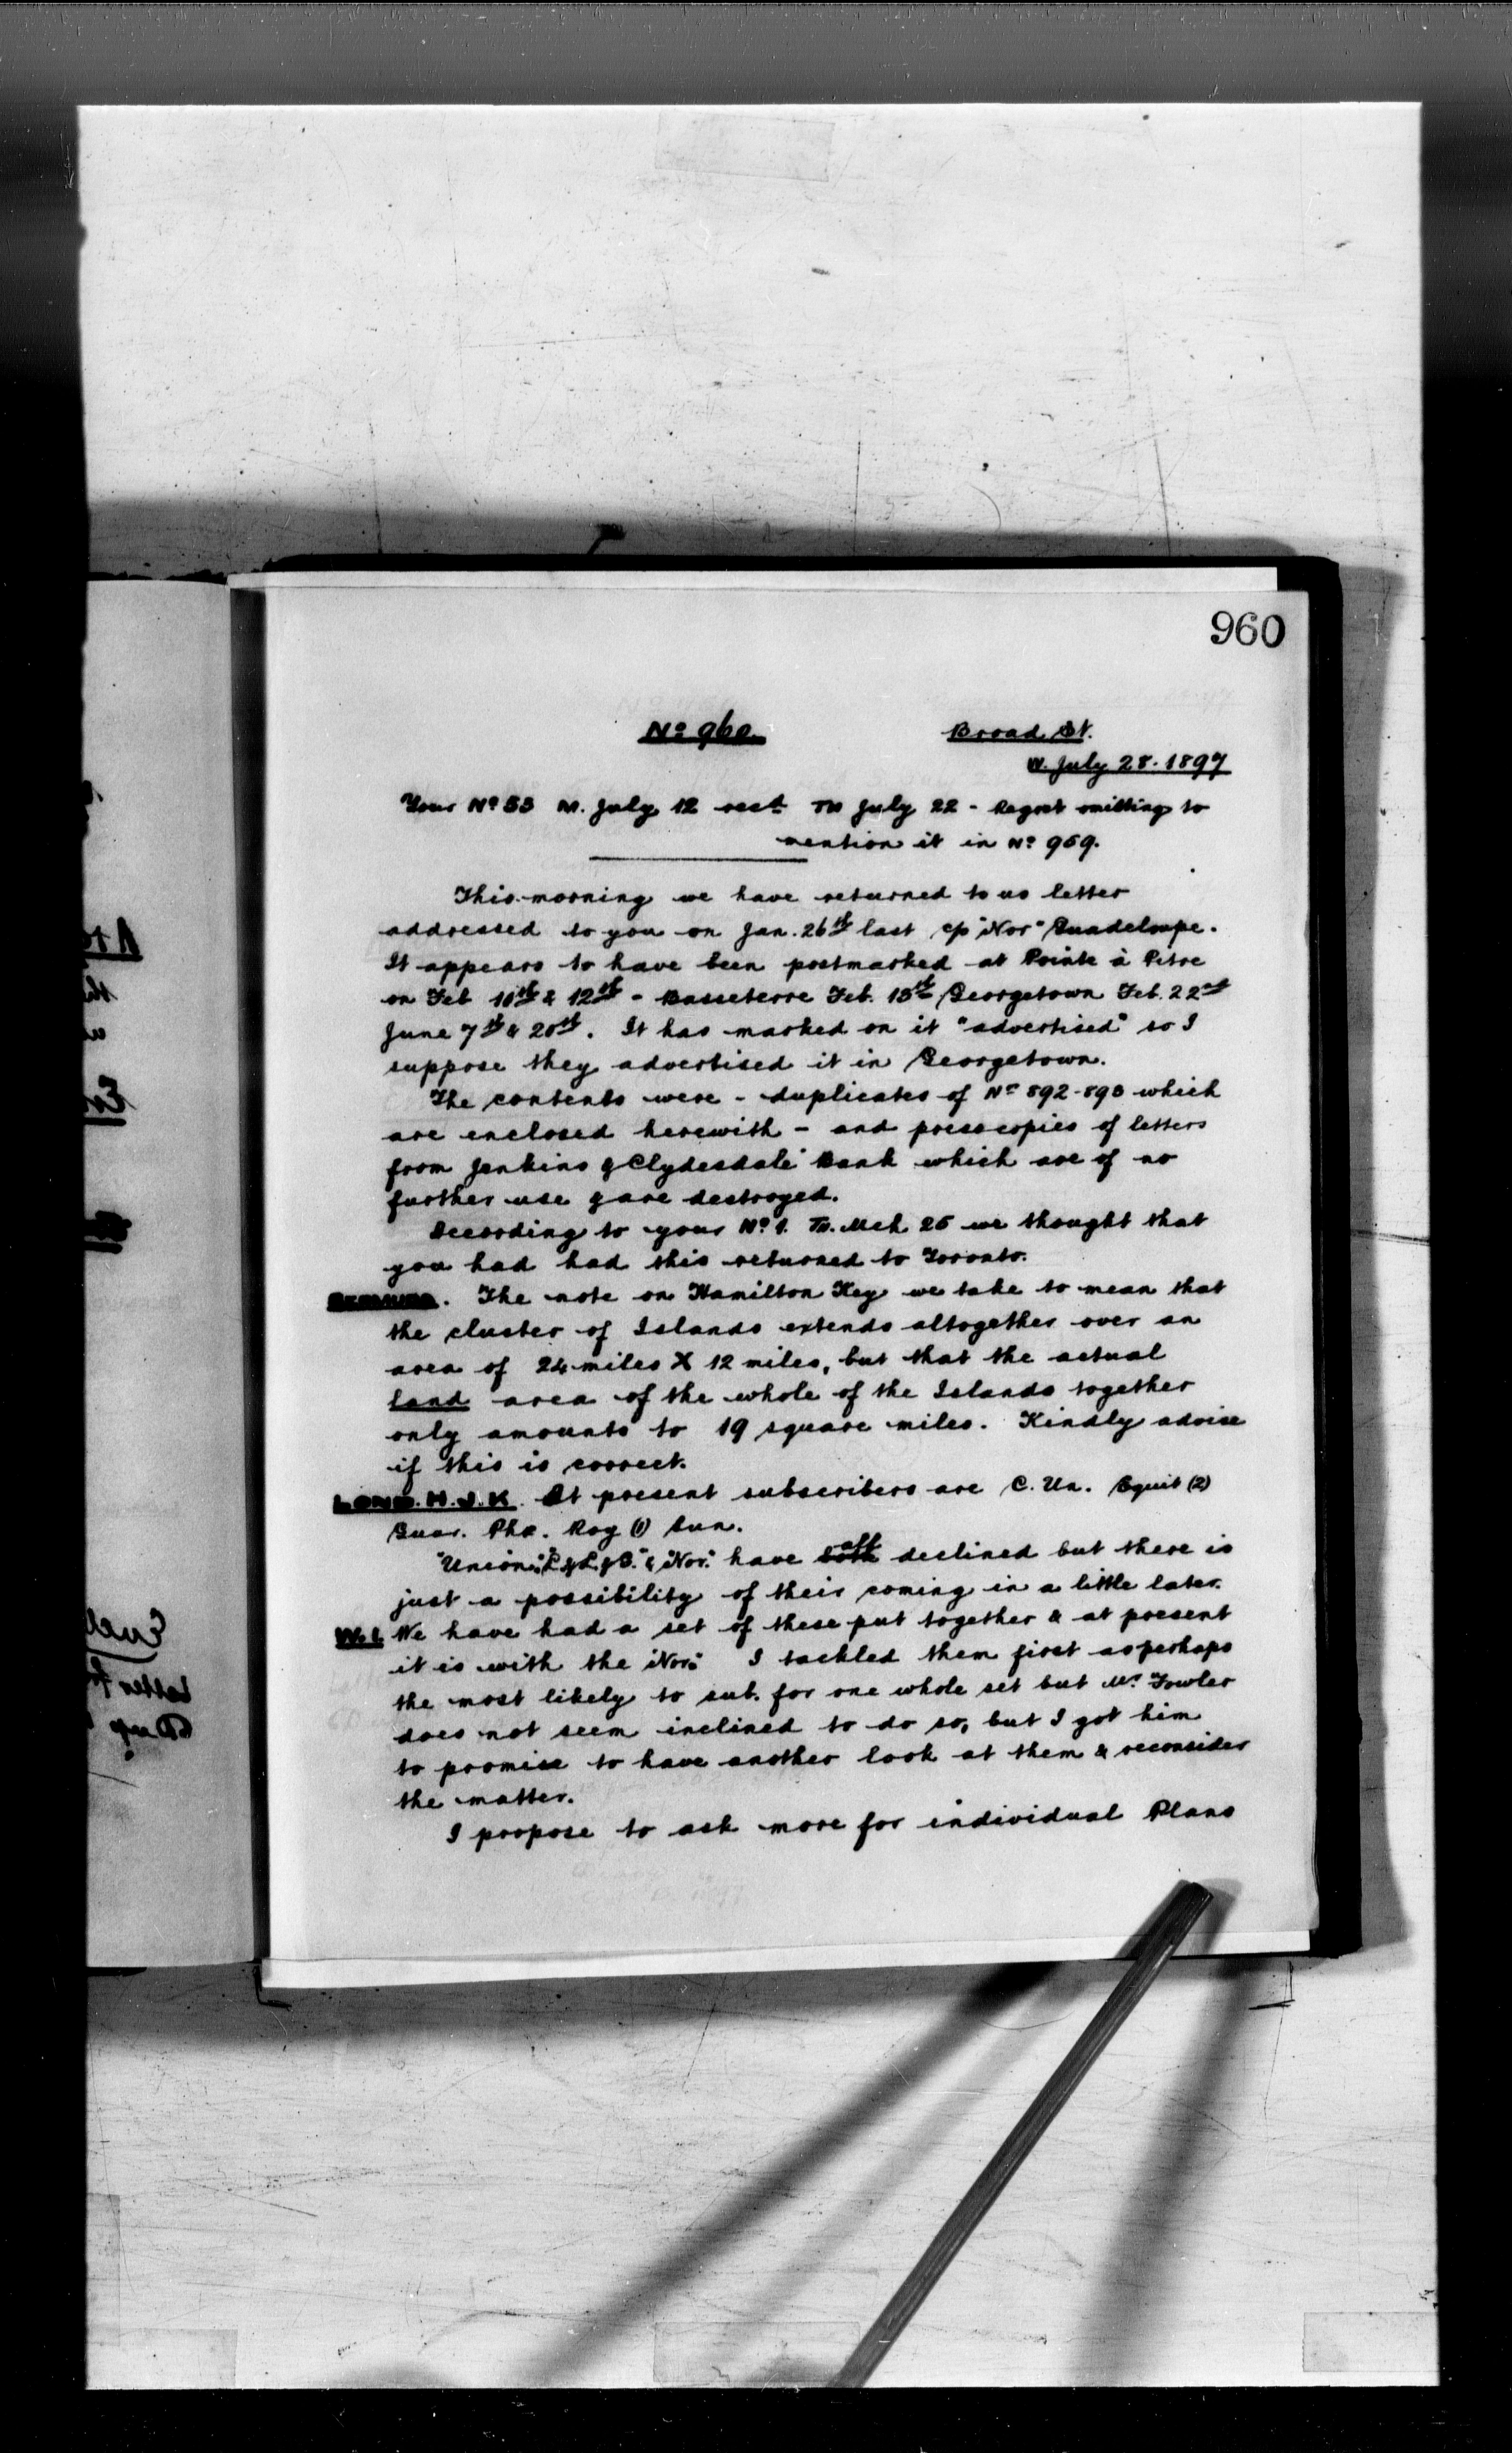 960
No 960.
Broad St.
W. July 28. 1897
Your No 53 M. July 12 recd. Th July 22 - Regret omitting to
mention it in No 959.
This morning we have returned to us letter
addressed to you on Jan. 26th last c/o "Nor" Guadeloupe.
It appears to have been postmarked at Pointe à Pitre
on Feb 10th & 12th - Basseterre Feb. 15th Georgetown Feb. 22nd
June 7th & 20th. It has marked on it "advertised" so I
suppose they advertised it in Georgetown.
The contents were - duplicates of Nos 892-893 which
are enclosed herewith - and presscopies of letters
from Jenkins & Clydesdale Bank which are of no
further use & are destroyed.
According to your No 1. Th. Mch 25 we thought that
you had had this returned to Toronto.
BERMUDA. The note on Hamilton Key we take to mean that
the cluster of Islands extends altogether over an
area of 24 miles X 12 miles, but that the actual
land area of the whole of the Islands together
only amounts to 19 square miles. Kindly advise
if this is correct.
LOND. H.J.K. At present subscribers are C. Un. Equit (2)
Guar. Phx. Roy (1) Sun.
"Union," "L & L & G." & "Nor." have both all declined but there is
just a possibility of their coming in a little later.
W.I. We have had a set of these put together & at present
it is with the "Nor." I tackled them first as perhaps
the most likely to sub. for one whole set but Mr Fowler
does not seem inclined to do so, but I got him
to promise to have another look at them & reconsider
the matter.
I propose to ask more for individual Plans